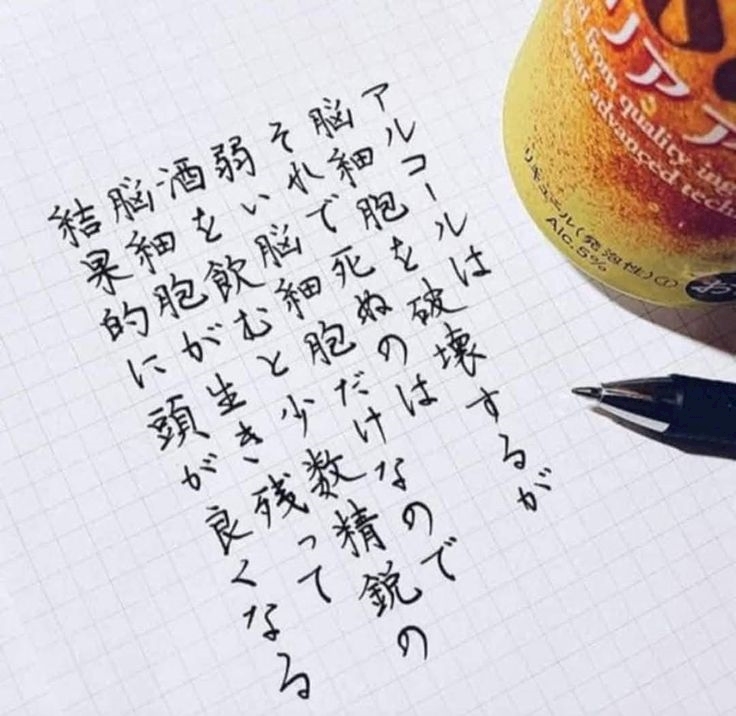 アルコールは
脳細胞を破壊するが
それで死ぬのは
弱い脳細胞だけなので
酒を飲むと少数精鋭の
脳細胞が生き残って
結果的に頭が良くなる
from quality
advanced
リキュール(発泡性)①
Alc.5%
お